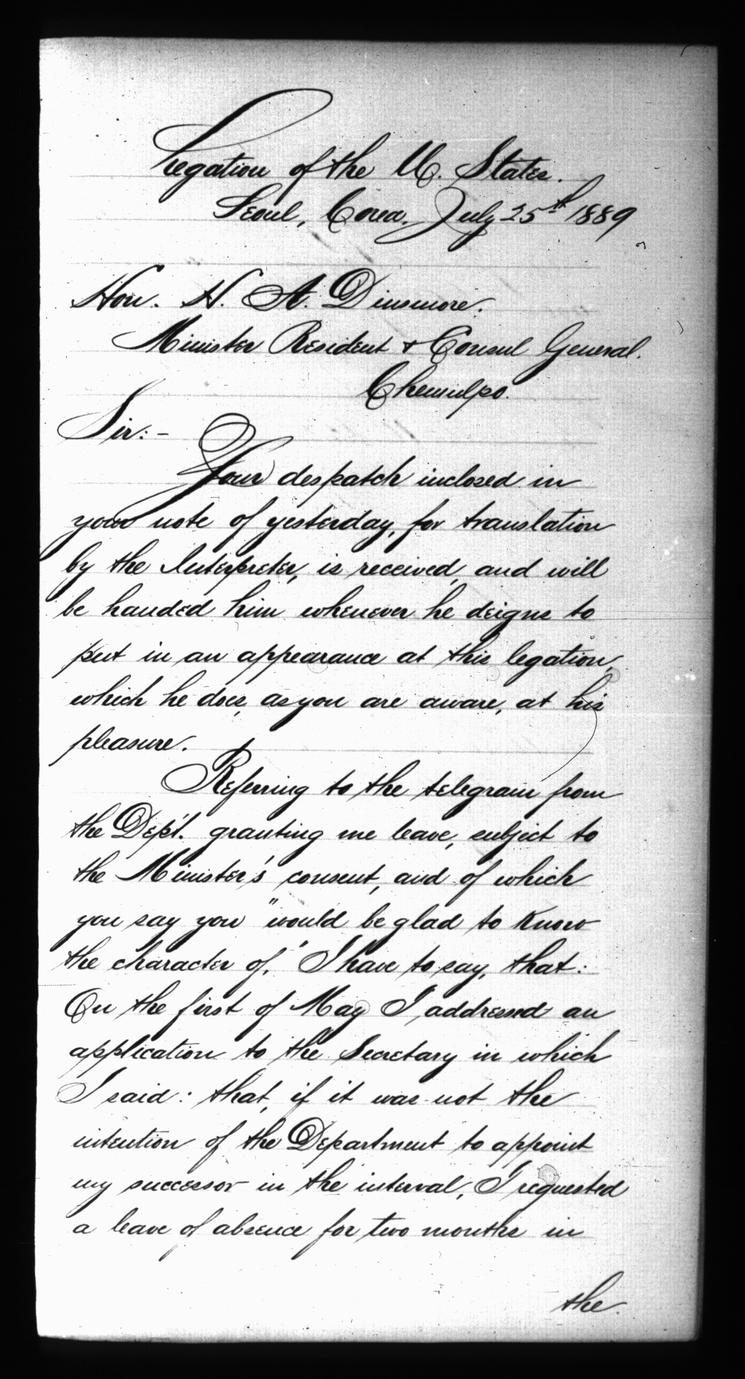 Legation of the U. States.
Seoul, Corea. July 25th 1889
Hon. H. A. Dinsmore.
Minister Resident & Consul General.
Chemulpo.
Sir:-
Your despatch inclosed in
your note of yesterday, for translation
by the Interpreter, is received, and will
be handed him whenever he deigns to
put in an appearance at this legation,
which he does, as you are aware, at his
pleasure.
Referring to the telegram from
the Dep't. granting me leave, subject to
the Minister's consent, and of which
you say you "would be glad to know
the character of," I have to say, that:
On the first of May I addressed an
application to the Secretary in which
I said: that, if it was not the
intention of the Department to appoint
my successor in the interval, I requested
a leave of absence for two months in
the